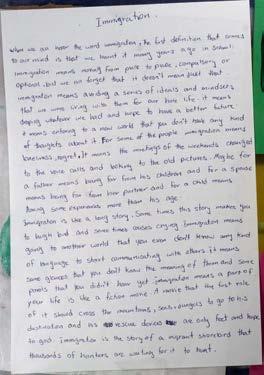 Immigration.
When we are hear the word immigration, the first definition that comes
to our mind is that we learnt it many years ago in school:
immigration means moving from place to place, compulsory or
optional, but we no forget that it doesn't mean just that
immigration means avoiding a series of ideals and mindsets
that we were living with them for our hole life. it means
doping whatever we had and hope to have a better future
it means entering to a new world that you don't have any kind
of thoughts about it. For some of the people immigration means
loneliness, regret. It means the meetings of the weekends changed
to the voice calls and talking to the old pictures. Maybe for
a father means being far from his children and for a spouse
means being far from her partner and for a child means
having some experiences more than his age.
Immigration is like a long story. Some times this story makes you
to laugh but and some times causes crying immigration means
going to another world that you even don't know any kind
of language to start communicating with others it means
some glances that you don't know the meaning of them and some
panels that you didn't how yet immigration means a part of
your life is like a fiction movie. A movie that the first role
of it should cross the mountains, seas, jungels to go to his
destination and his rescue devices are only feet and hope
to god. Immigration is the story of a migrant shorebird that
thousands of hunters are waiting for it to hunt.